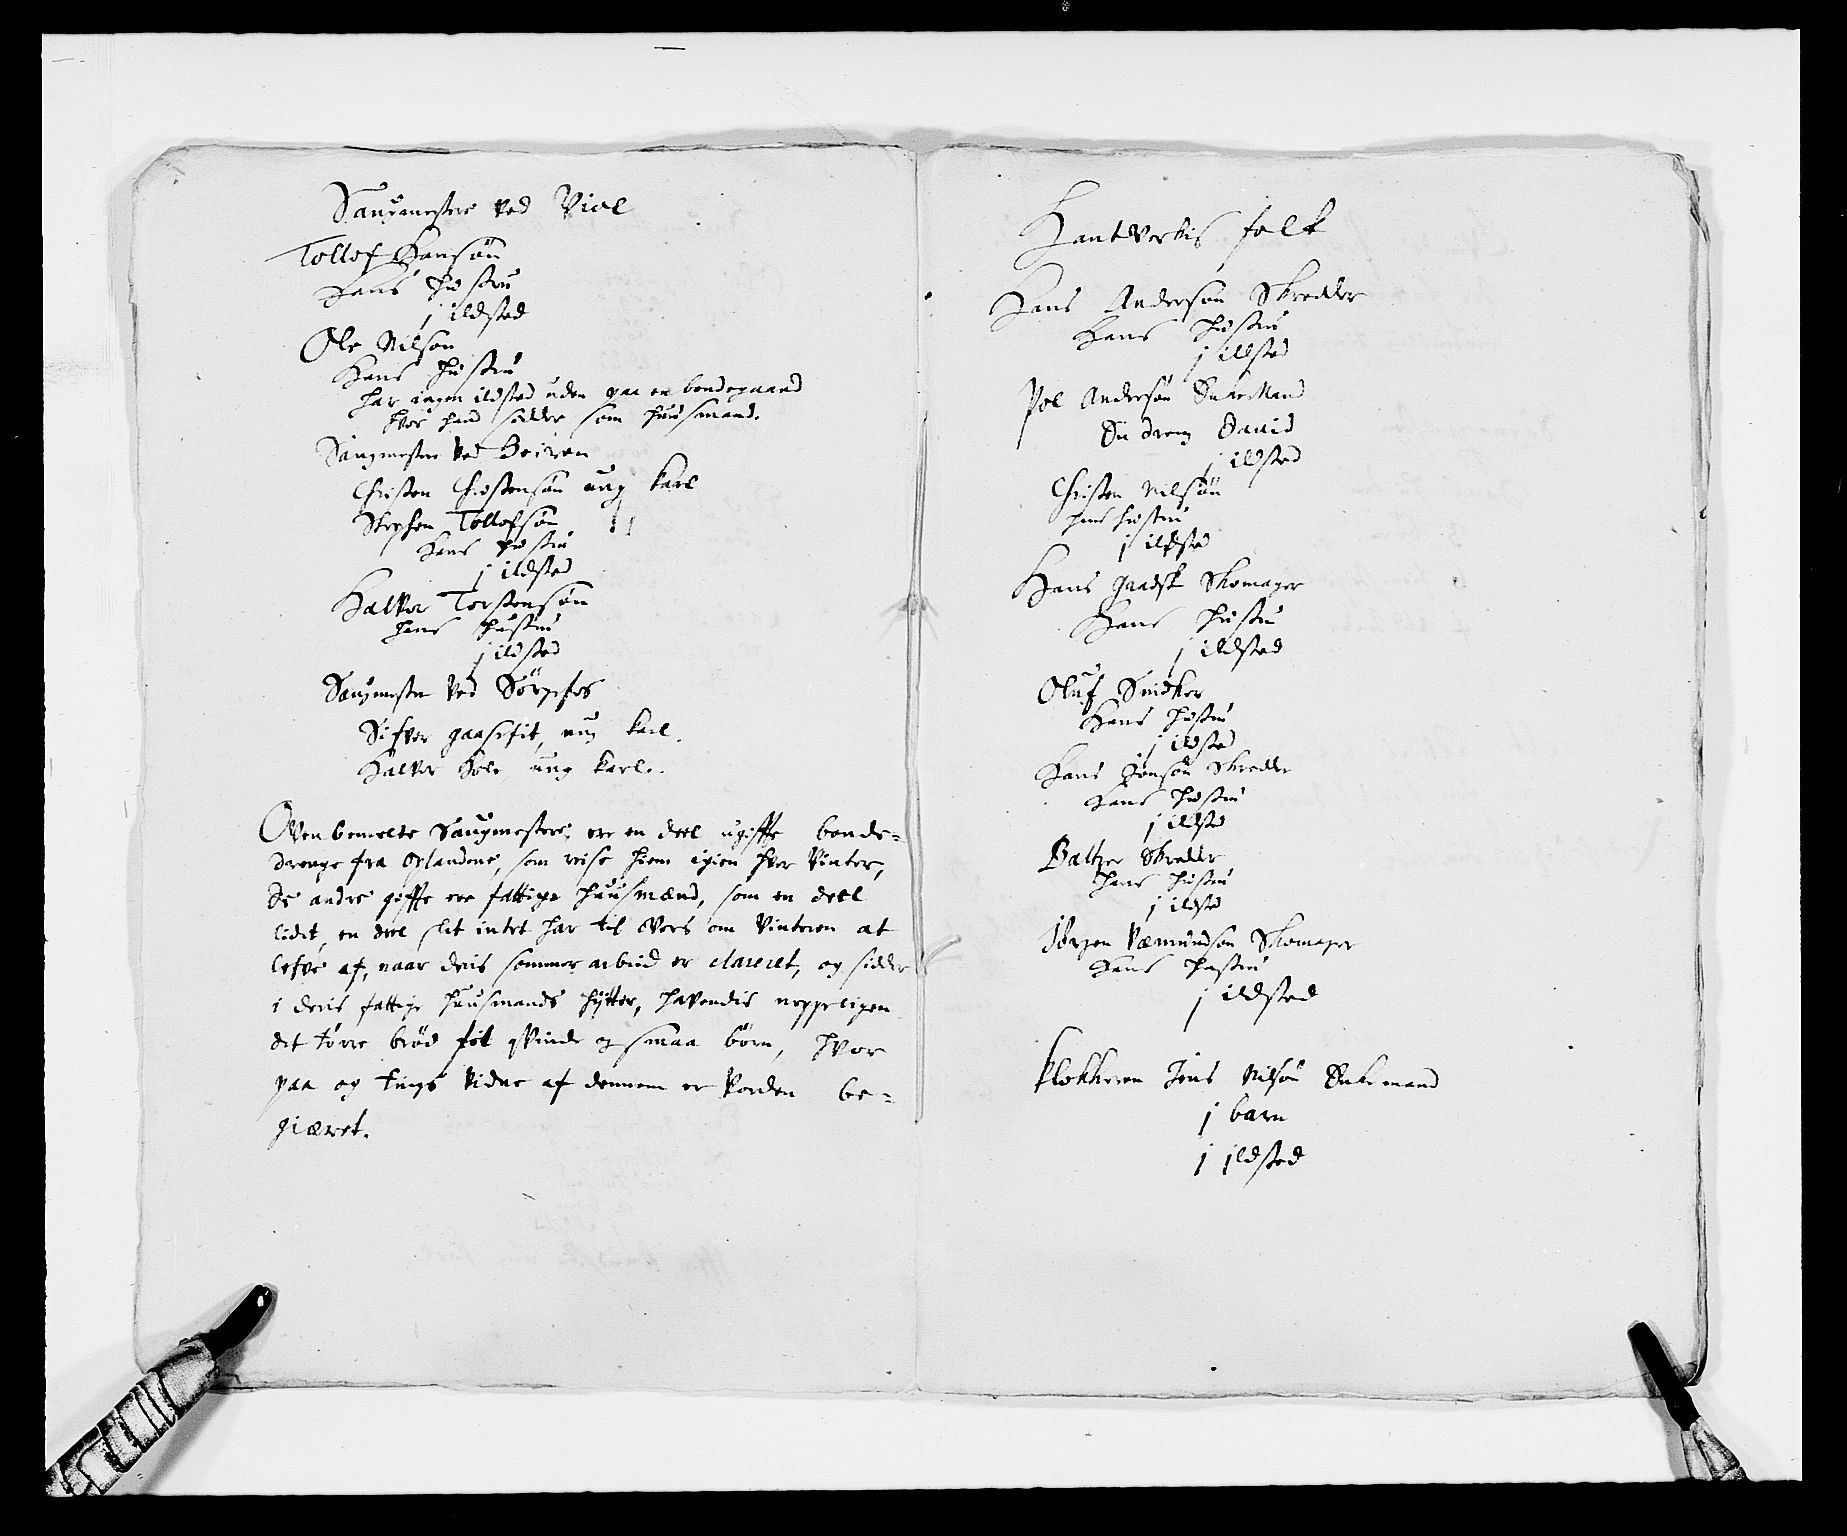 Saugmestere ved Viul
Tollof Hansøn
Hans Hustru
j ildsted
Ole Nilsøn
Hans Hustru
har ingen ildsted uden paa en bondegaard
hvor hand sidder som huusmand.
Saugmester ved Beiren
Christen Christensøn ung karl
Stephen Tollofsøn
Hans Hustru
j ildsted
Halvor Torstensøn
Hans Hustru
j ildsted
Saugmester ved
Sifver gaasefit, ung karl.
Halvor Hole ung karl.
Ovenbemelte Saugmestere, ere en deel ugiffte bonde-
drenge fra Oplandene, som reise hiem igien hver Vinter,
De andre giffte ere fattige huusmænd, som en deel
lidet, en deel slet intet har til Overs om Vinteren at
lefve af, naar deris sommer arbeid er clareret, og sidder
i deris fattige huusmands hytter, havendis neppeligen
det tørre brød til qvinde og smaa børn, hvor
paa og tings vidne af dennem er vorden be-
giæret.
Hantverkis folk
Hans Andersøn Skredder
Hans Hustru
j ildsted
Pol Andersøn Enkemand
En dreng David
j ildsted
Christen Nilsøn
Hans Hustru
j ildsted
Hans Skomager
Hans Hustru
j ildsted
Oluf Snidker
Hans Hustru
j ildsted
Hans Jonsøn Skredder
Hans Hustru
j ildsted
Baltzer Skredder
Hans Hustru
j ildsted
Jørgen Skomager
Hans Hustru
j ildsted
Klokkeren Jens Nilsøn Enkemand
j barn
j jldsted